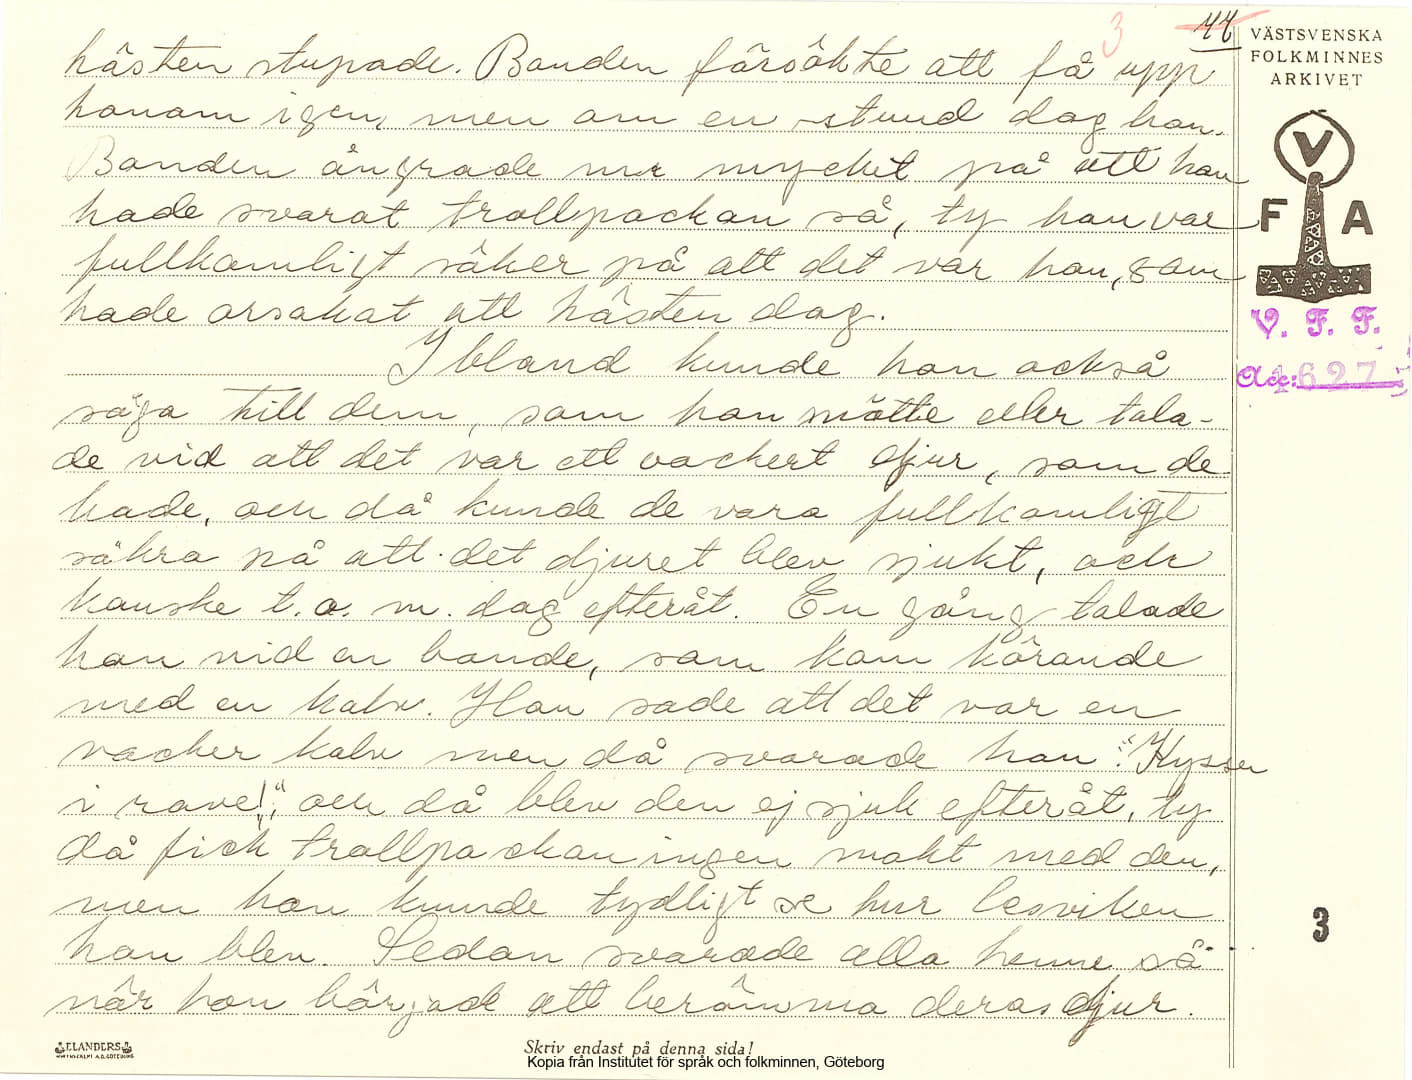 3 44
VÄSTSVENSKA
FOLKMINNES
ARKIVET
V
F A
V. F. F.
Acc: 1627
hästen stupade. Bonden försökte att få upp
honom igen, men om en stund dog han.
Bonden ångrade nu mycket på att han
hade svarat trollpackan så, ty han var
fullkomligt säker på att det var hon, som
hade orsakat att hästen dog.
Ibland kunde hon också
säga till dem, som hon mötte eller tala-
de vid att det var ett vackert djur, som de
hade, och då kunde de vara fullkomligt
säkra på att det djuret blev sjukt, och
kanske t.o.m. dog efteråt. En gång talade
hon vid en bonde, som kom körande
med en kalv. Hon sade att det var en
vacker kalv men då svarade han: "Kyssen
i raven!", och då blev den ej sjuk efteråt, ty
då fick trollpackan ingen makt med den,
men han kunde tydligt se hur besviken
hon blev. Sedan svarade alla henne så
när hon började att berömma deras djur.
3
ELANDERS
Skriv endast på denna sida!
Kopia från Institutet för språk och folkminnen, Göteborg